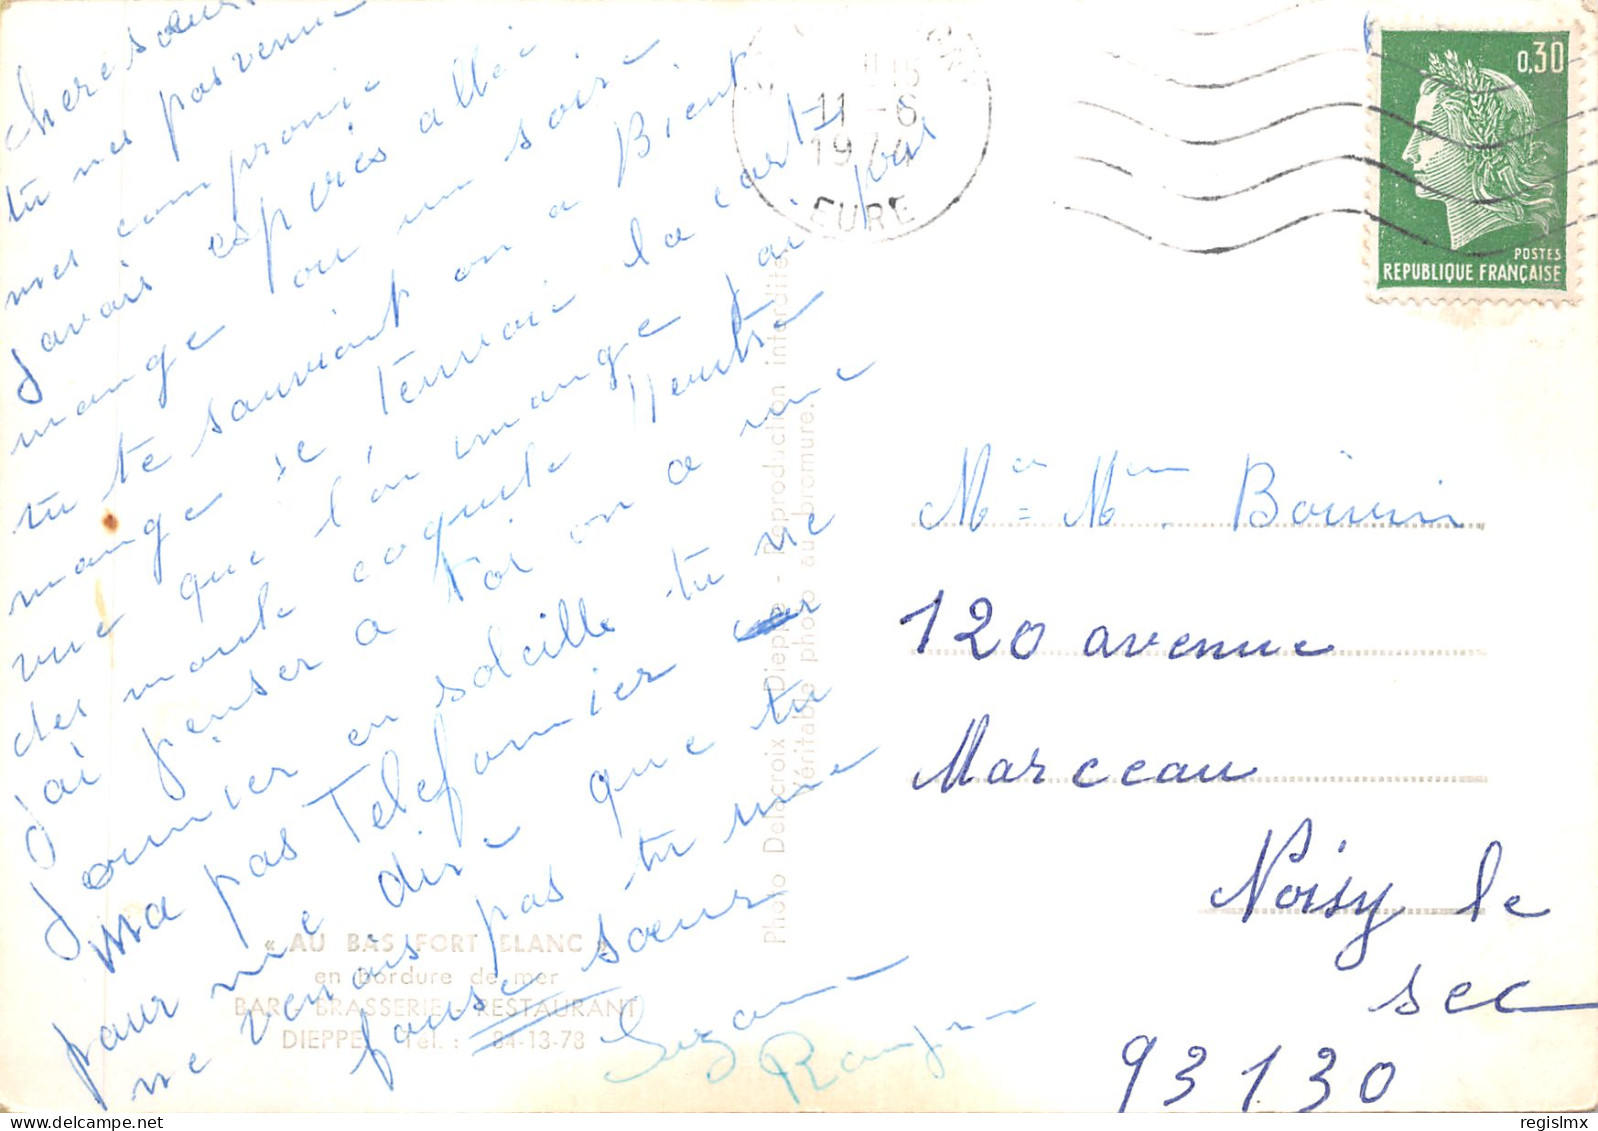 chere soeur
tu nes pas venue
mes compronie
javais esprés allée
mange ou un soire
tu te souvient on a Bient
mange se terroir la carte
vue que l'on mange ai pas
des moule coquile Neutre
j'ai penser a toi on a une
journier en soleille tu ne
ma pas Telefonnier
pour me dire que tu
ne venais pas tu une
fouse soeur
Suzanne
« AU BAS FORT BLANC »
en bordure de mer
BAR - BRASSERIE - RESTAURANT
DIEPPE - Tél. : 84-13-78
Photo Delacroix Dieppe - Reproduction interdite.
Véritable photo au bromure.
11 - 6
1974
EURE
0,30
POSTES
REPUBLIQUE FRANÇAISE
Mr = Mme. Boivin
120 avenue
Marceau
Noisy le
sec
93130
regislmx
delcampe.net